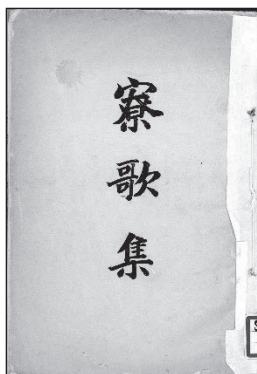 寮歌集